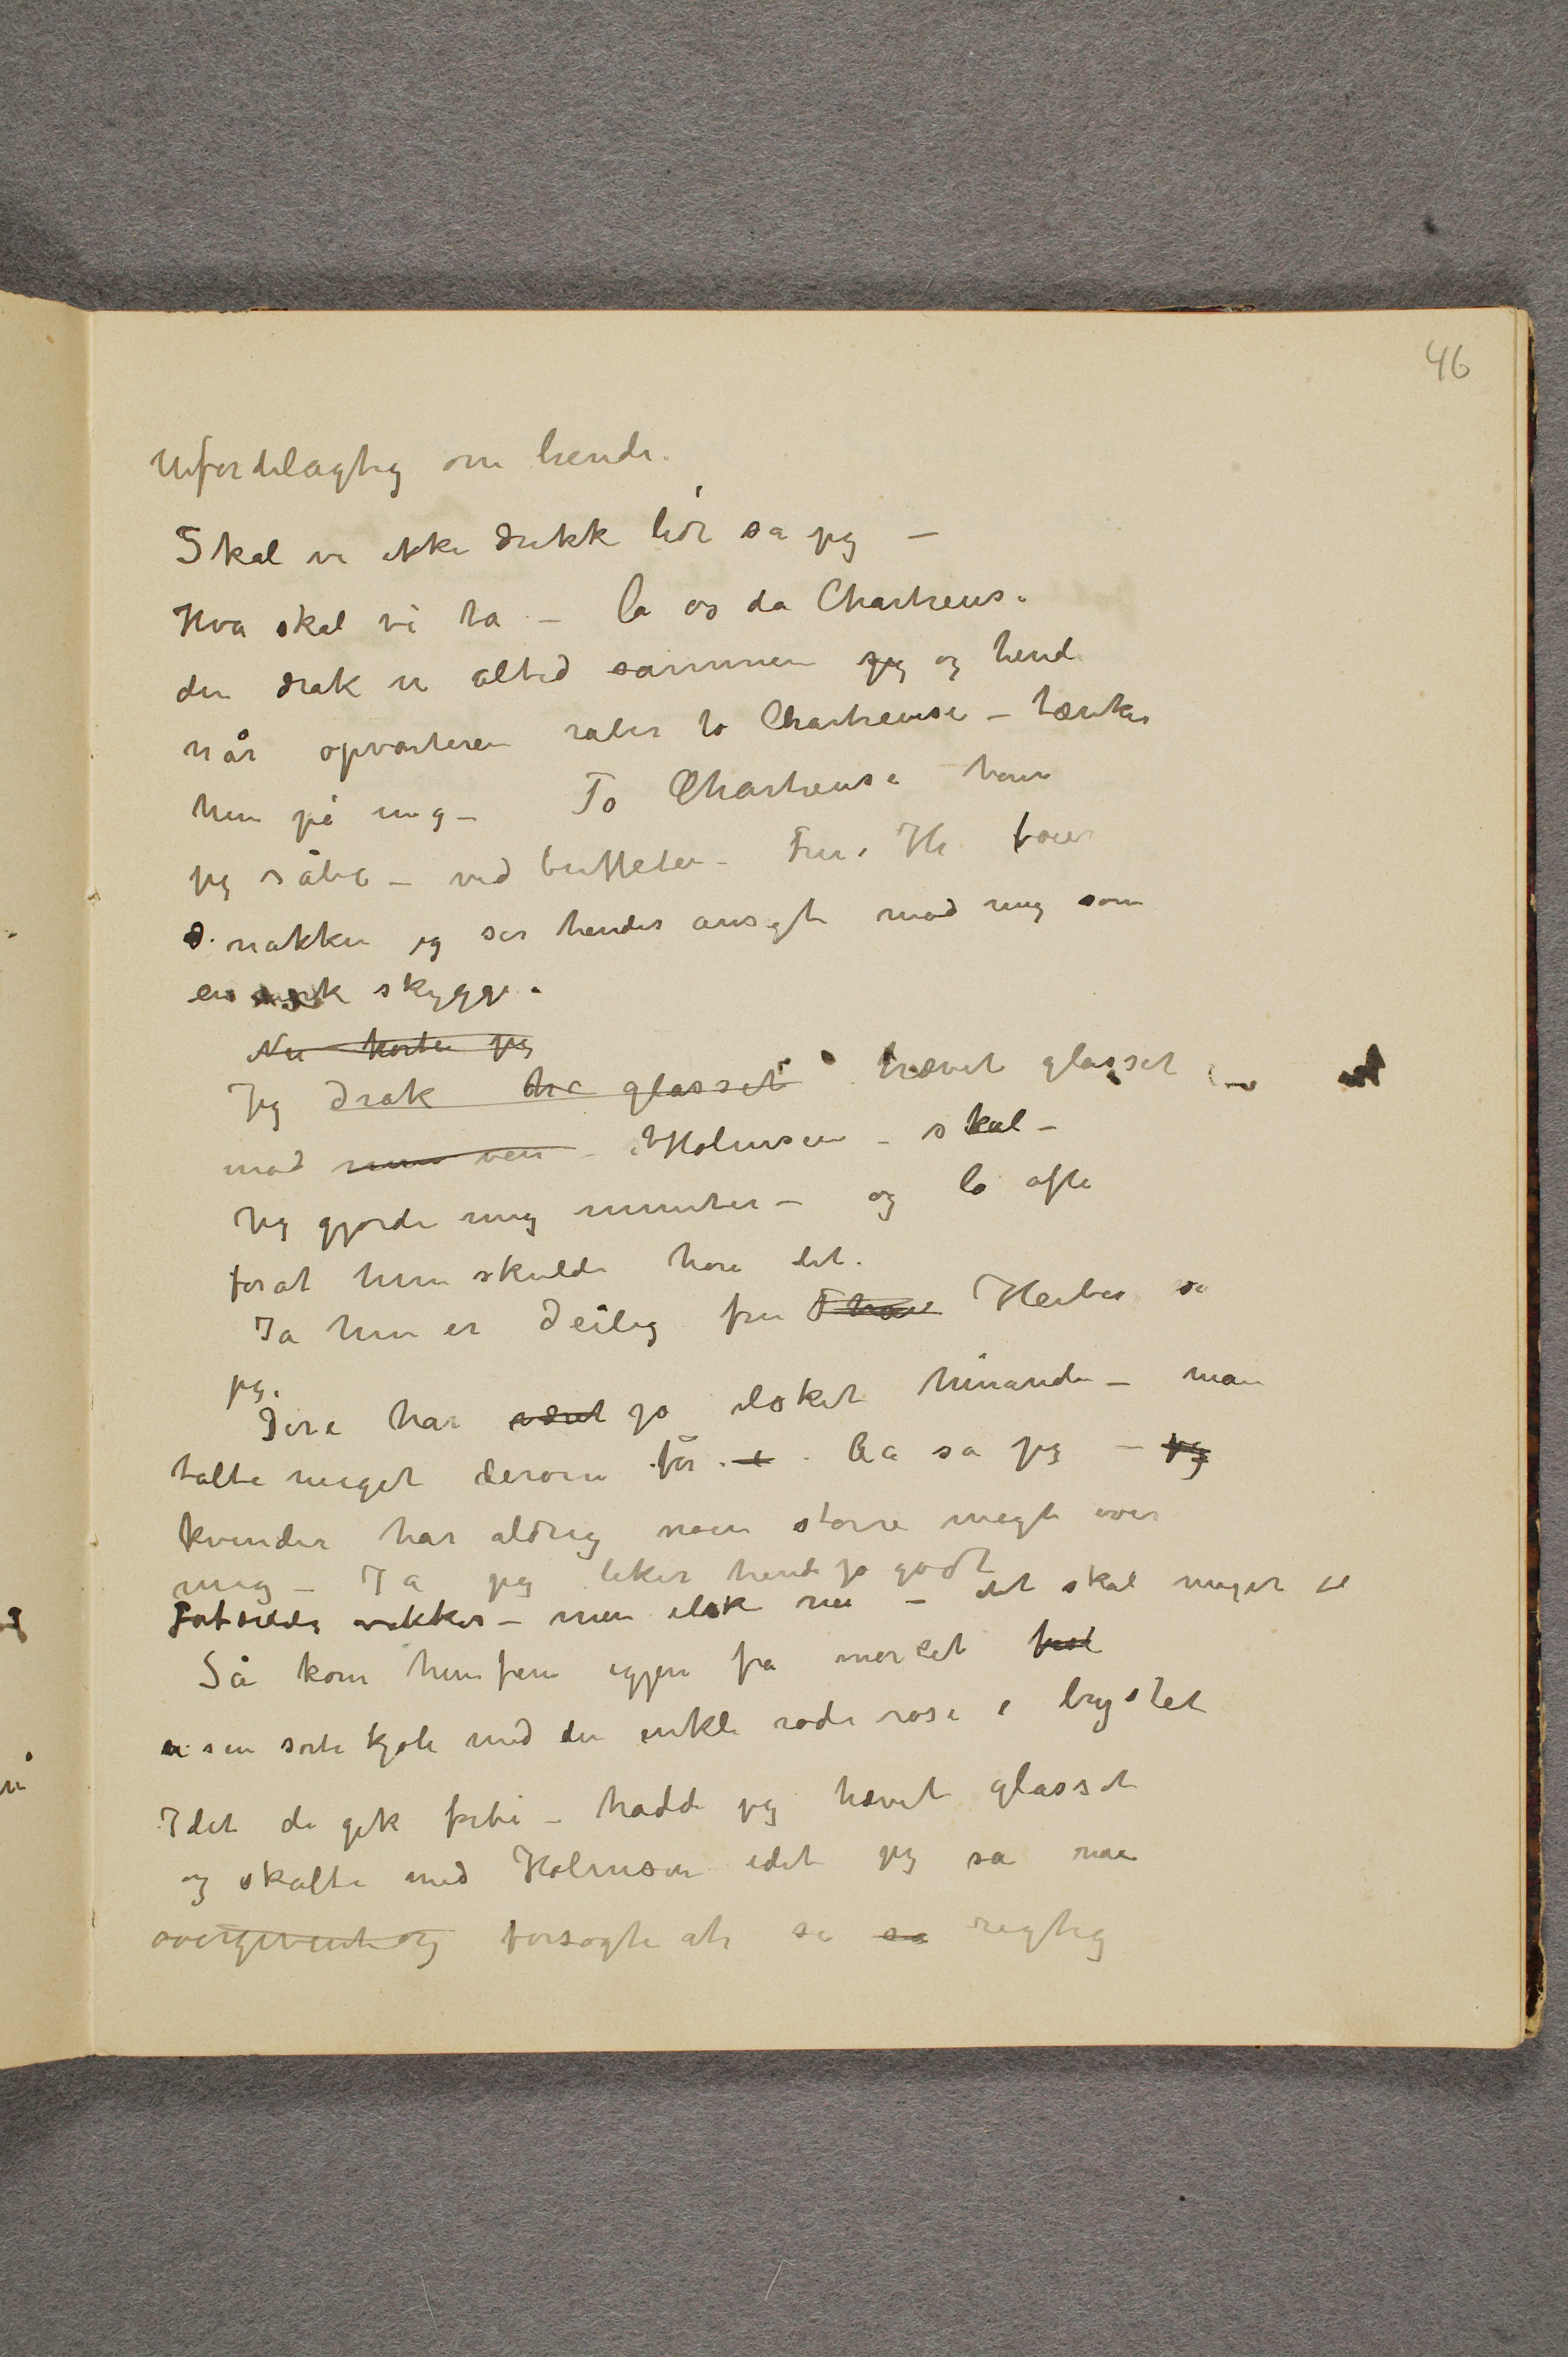 46
Ufordelagtig om hende.
Skal vi ikke drikk lidt sa jeg –
Hva skal vi ta – la os da Chartreuse
den drak vi altid sammen jeg og hende
når opvarteren råber to Chartreuse – tænker
hun på mig – To Chartreuse hører
jeg råbe – ved buffeten – Fru H
nakken jeg ser hendes ansigt mod mig som
en mørk skygge.
Nu hørte jeg
Jeg drak glasset hævet glasset
mod min ven – Holmsen – skal –
Jeg gjorde mig munter – og lo ofte
forat hun skulde høre det.
Ja hun er deilig fru Heiberg sa
jeg.
Dere har været jo elsket hinanden – man
talte meget derom før. – Aa sa jeg – jeg
kvinder har aldrig noen større magt over
mig – Ja jeg liker hende jo godt
– men elsk nei – det skal meget til
Så kom hun frem igjen fra mørket
sin sorte kjole med den enkle røde rose i brystet
Idet de gik forbi – hadde jeg hævet glasset
og skålte med Holmsen idet jeg sa noe
overgivent og forsøgte at se sa rigtig